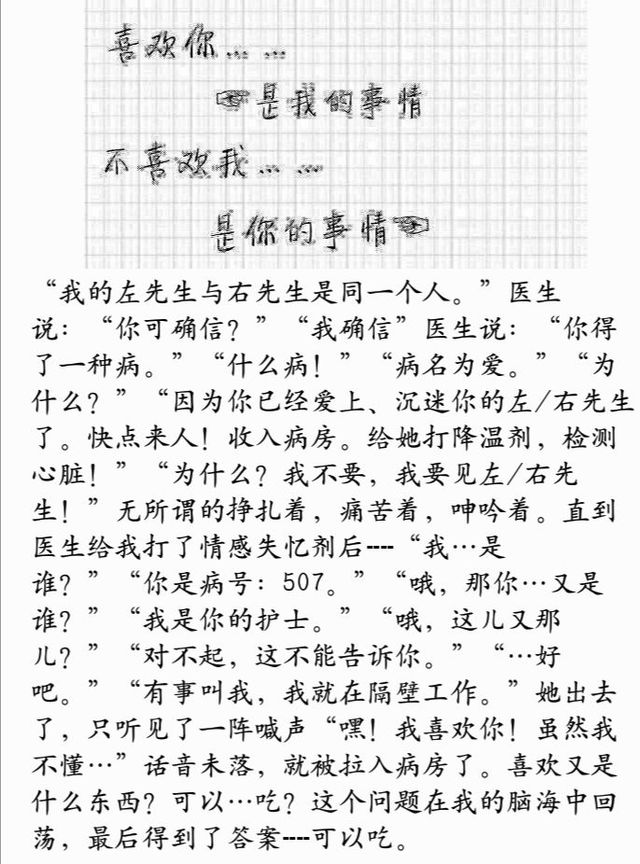 喜欢你……
☞是我的事情
不喜欢我……
是你的事情☜
“我的左先生与右先生是同一个人。”医生
说：“你可确信？”“我确信”医生说：“你得
了一种病。”“什么病！”“病名为爱。”“为
什么？”“因为你已经爱上、沉迷你的左/右先生
了。快点来人！收入病房。给她打降温剂，检测
心脏！”“为什么？我不要，我要见左/右先
生！”无所谓的挣扎着，痛苦着，呻吟着。直到
医生给我打了情感失忆剂后----“我…是
谁？”“你是病号：507。”“哦，那你…又是
谁？”“我是你的护士。”“哦，这儿又那
儿？”“对不起，这不能告诉你。”“…好
吧。”“有事叫我，我就在隔壁工作。”她出去
了，只听见了一阵喊声“嘿！我喜欢你！虽然我
不懂…”话音未落，就被拉入病房了。喜欢又是
什么东西？可以…吃？这个问题在我的脑海中回
荡，最后得到了答案----可以吃。